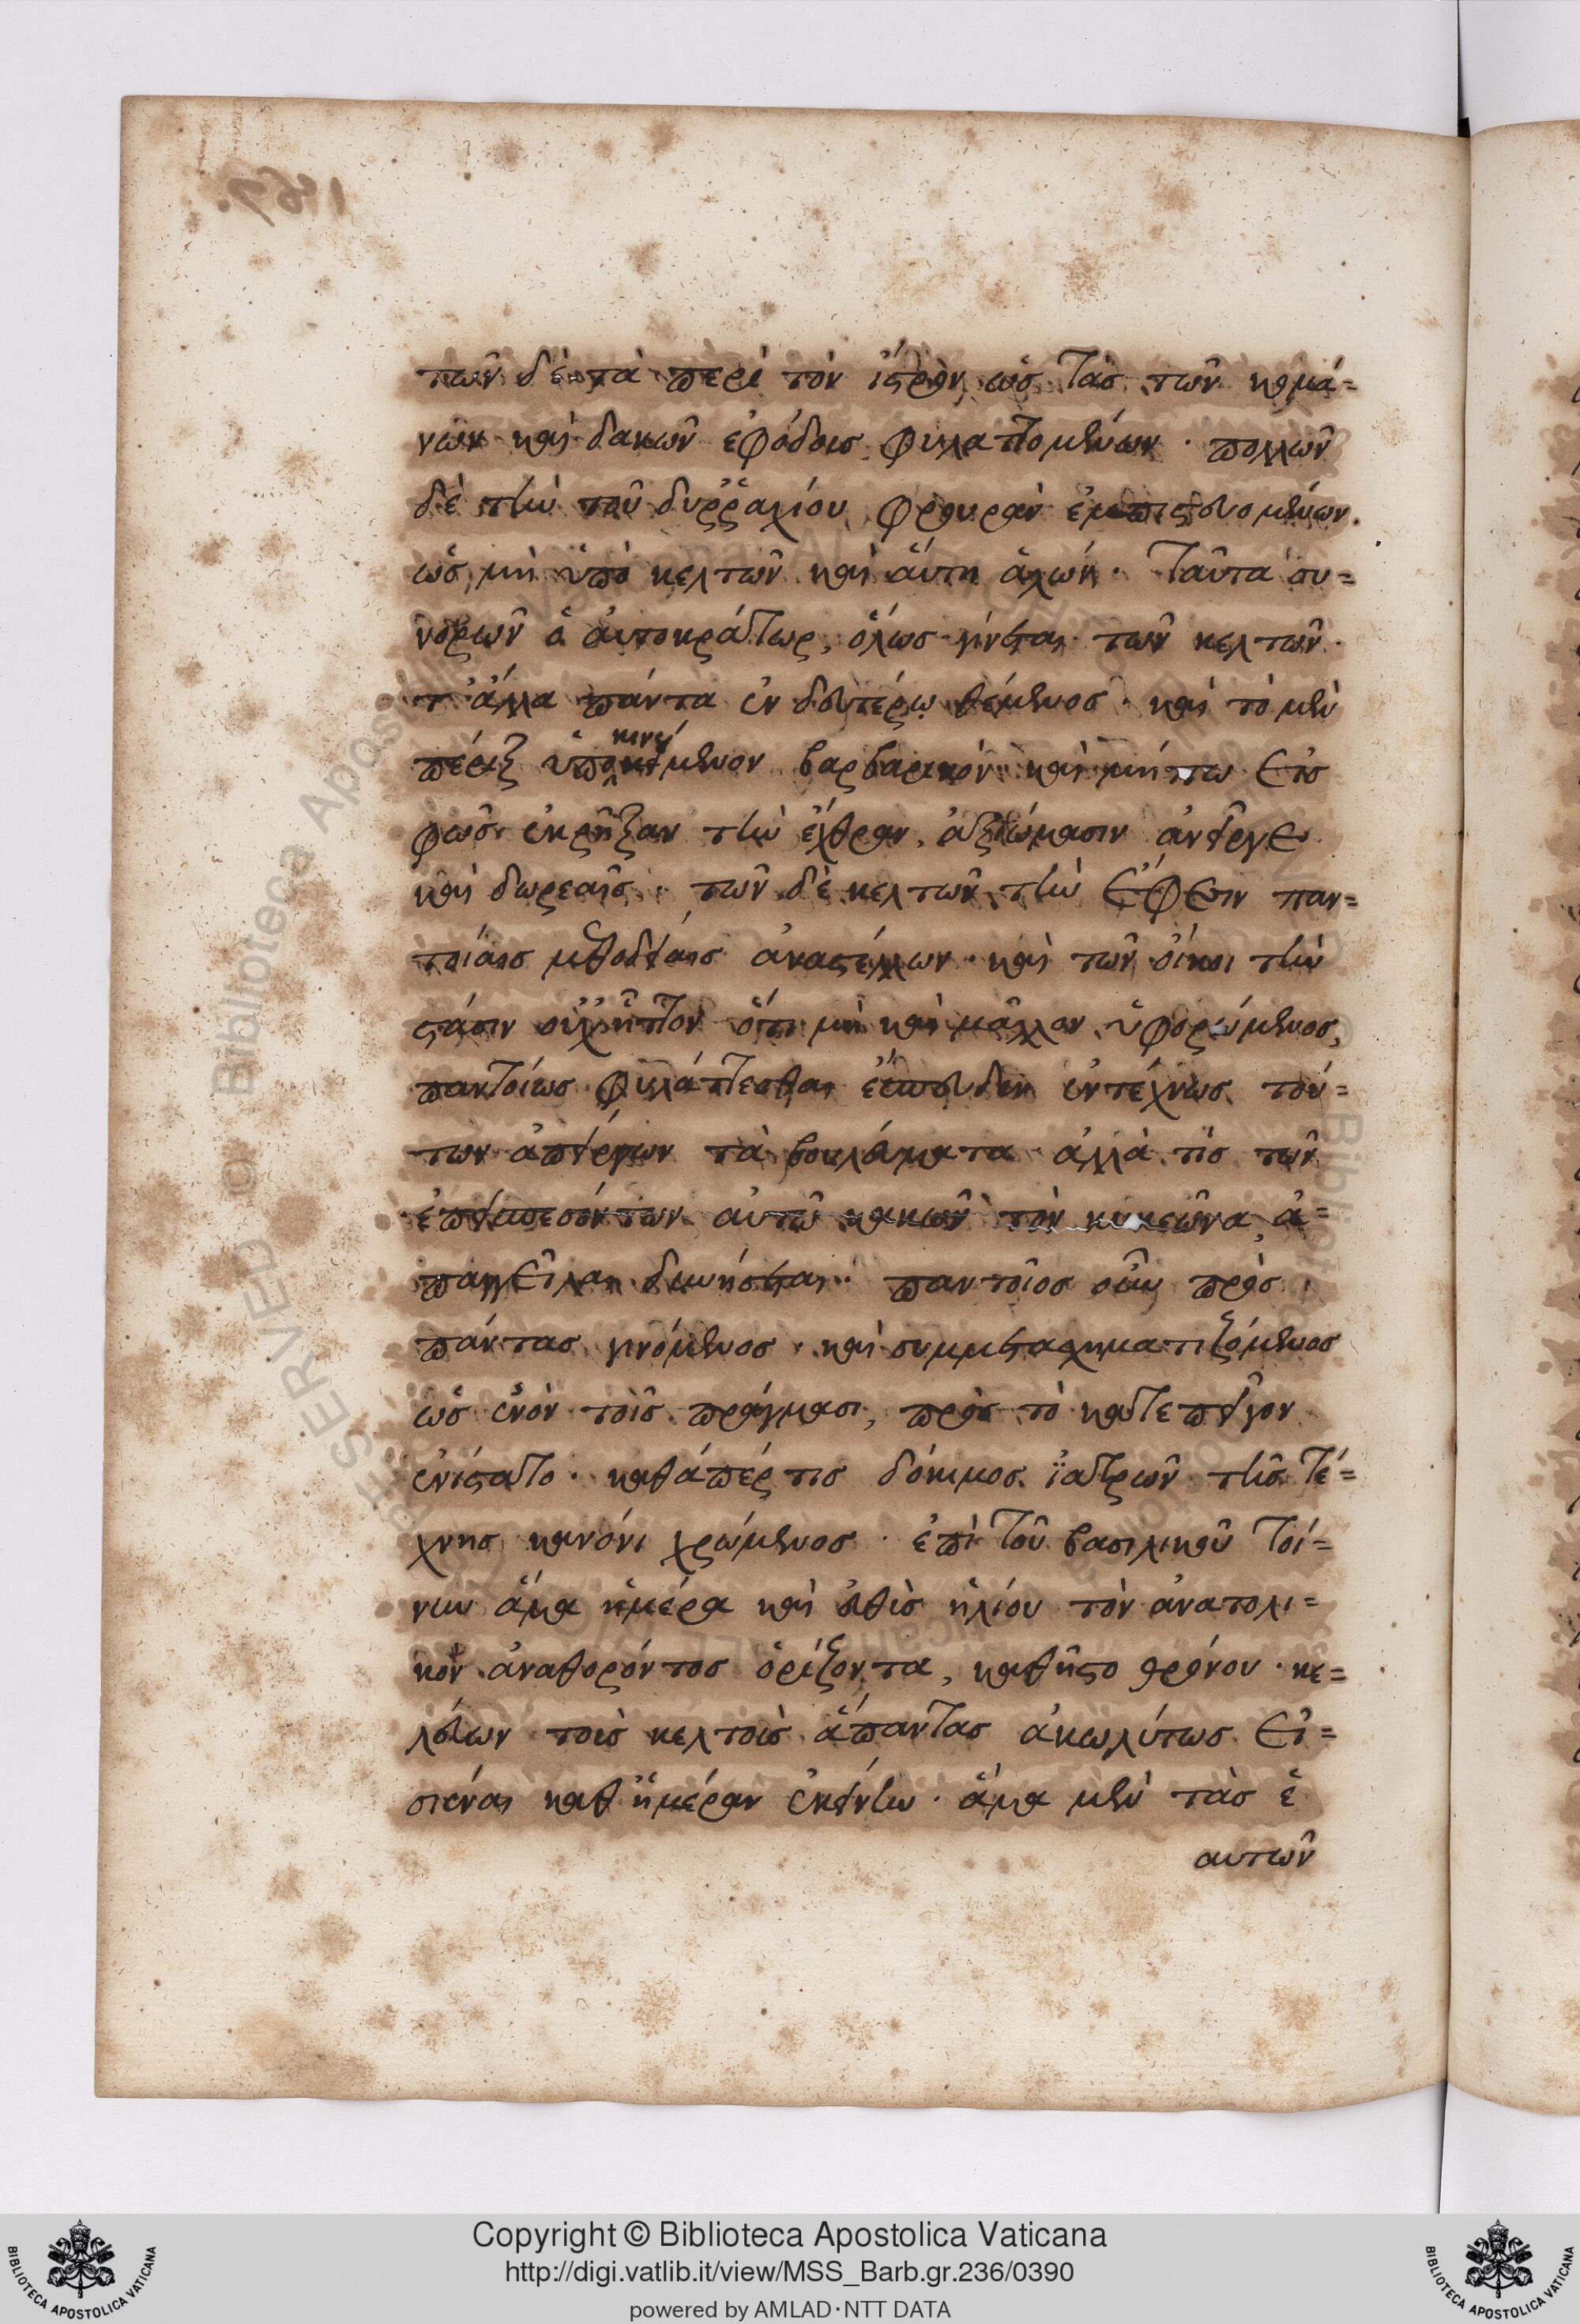 των δὲ τὰ περὶ τὸν ἴστρον ὡς τὰς τῶν κομά=
νων καὶ δακῶν ἐφόδοις φυλαττομένων · πολλῶν
δὲ τὴν τοῦ δυῤῥαχίου φρουρὰν ἐμπιστευομένων.
ὡς μὴ ὑπὸ κελτῶν καὶ αὕτη ἁλώη · ταῦτα συ=
νορῶν ὁ αὐτοκράτωρ, ὅλως γίνεται τῶν κελτῶν ·
τ' ἄλλα πάντα ἐν δευτέρω θέμενος · καὶ τὸ μὲν
πέριξ ὑποκινούμενον βαρβαρικὸν καὶ μήπω εἰς
φῶς ἐκρῆξαν τὴν ἔχθραν, ἀξιώμασιν ἀνεῖργε
καὶ δωρεαῖς · τῶν δὲ κελτῶν τὴν ἔφεσιν παν=
τοίαις μεθοδείαις ἀναστέλλων · καὶ τῶν οἴκοι τὴν
στάσιν οὐχ ἧττον ὅτι μὴ καὶ μᾶλλον ὑφορώμενος,
παντοίως φυλάττεσθαι ἔσπευδεν ἐντέχνως τού=
των ἀπείργων τὰ βουλεύματα · ἀλλὰ τίς τῶν
ἐπεισπεσόντων αὐτῶ κακῶν τὸν κυκεῶνα ἀ=
παγγεῖλαι δυνήσεται · παντοῖος οὖν πρὸς
πάντας γινόμενος · καὶ συμμετασχηματιζόμενος
ὡς ἐνὸν τοῖς πράγμασι, πρὸς τὸ κατεπεῖγον
ἐνίστατο · καθάπέρ τις δόκιμος ἰατρῶν τῆς τέ=
χνης κανόνι χρώμενος · ἐπὶ τοῦ βασιλικοῦ τοί=
νυν ἅμα ἡμέρα καὶ εὐθὺς ἡλίου τὸν ἀνατολι=
κὸν ἀναθορόντος ὁρίζοντα, καθῆστο θρόνου · κε=
λεύων τοὺς κελτοὺς ἅπαντας ἀκωλύτως εἰ=
σιέναι καθ' ἡμέραν ἐκείνω · ἅμα μὲν τὰς ἑ
αυτῶν
Copyright © Biblioteca Apostolica Vaticana
http://digi.vatlib.it/view/MSS_Barb.gr.236/0390
powered by AMLAD·NTT DATA